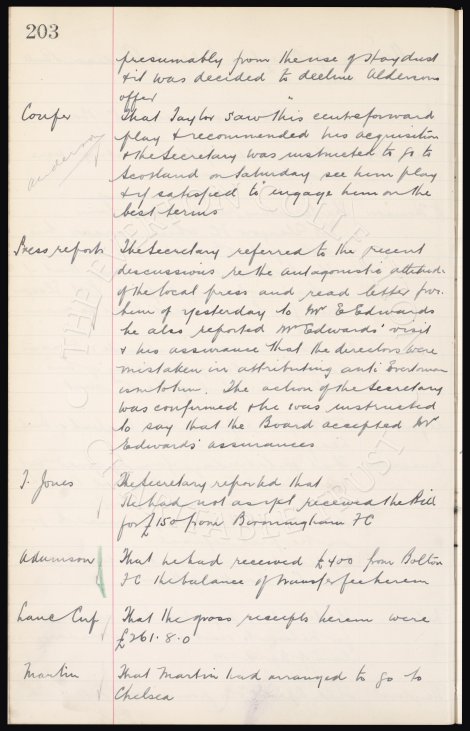 203
presumably from the use of Haydust
& it was decided to decline Aldersons
offer
Confer That Taylor saw this centreforward
anderson
play & recommended his acquisition
& the Secretary was instructed to go to
Scotland on Saturday, see him play
& if satisfied to engage him on the
best terms
Press reports The Secretary referred to the recent
discussions re the antagonistic attitude
of the local press and read letter from
him of yesterday to Mr E Edwards
he also reported Mr Edwards' visit
& his assurance that the directors were
mistaken in attributing anti Everton
ism to him. The action of the Secretary
was confirmed & he was instructed
to say that the Board accepted Mr
Edwards' assurances
T. Jones The Secretary reported that
He had not as yet received the Bill
for £150 from Birmingham FC
Adamson That he had received £400 from Bolton
FC the balance of transfer fee herein
Lanc Cup That the gross receipts herein were
£261.8.0
Martin That Martin had arranged to go to
Chelsea